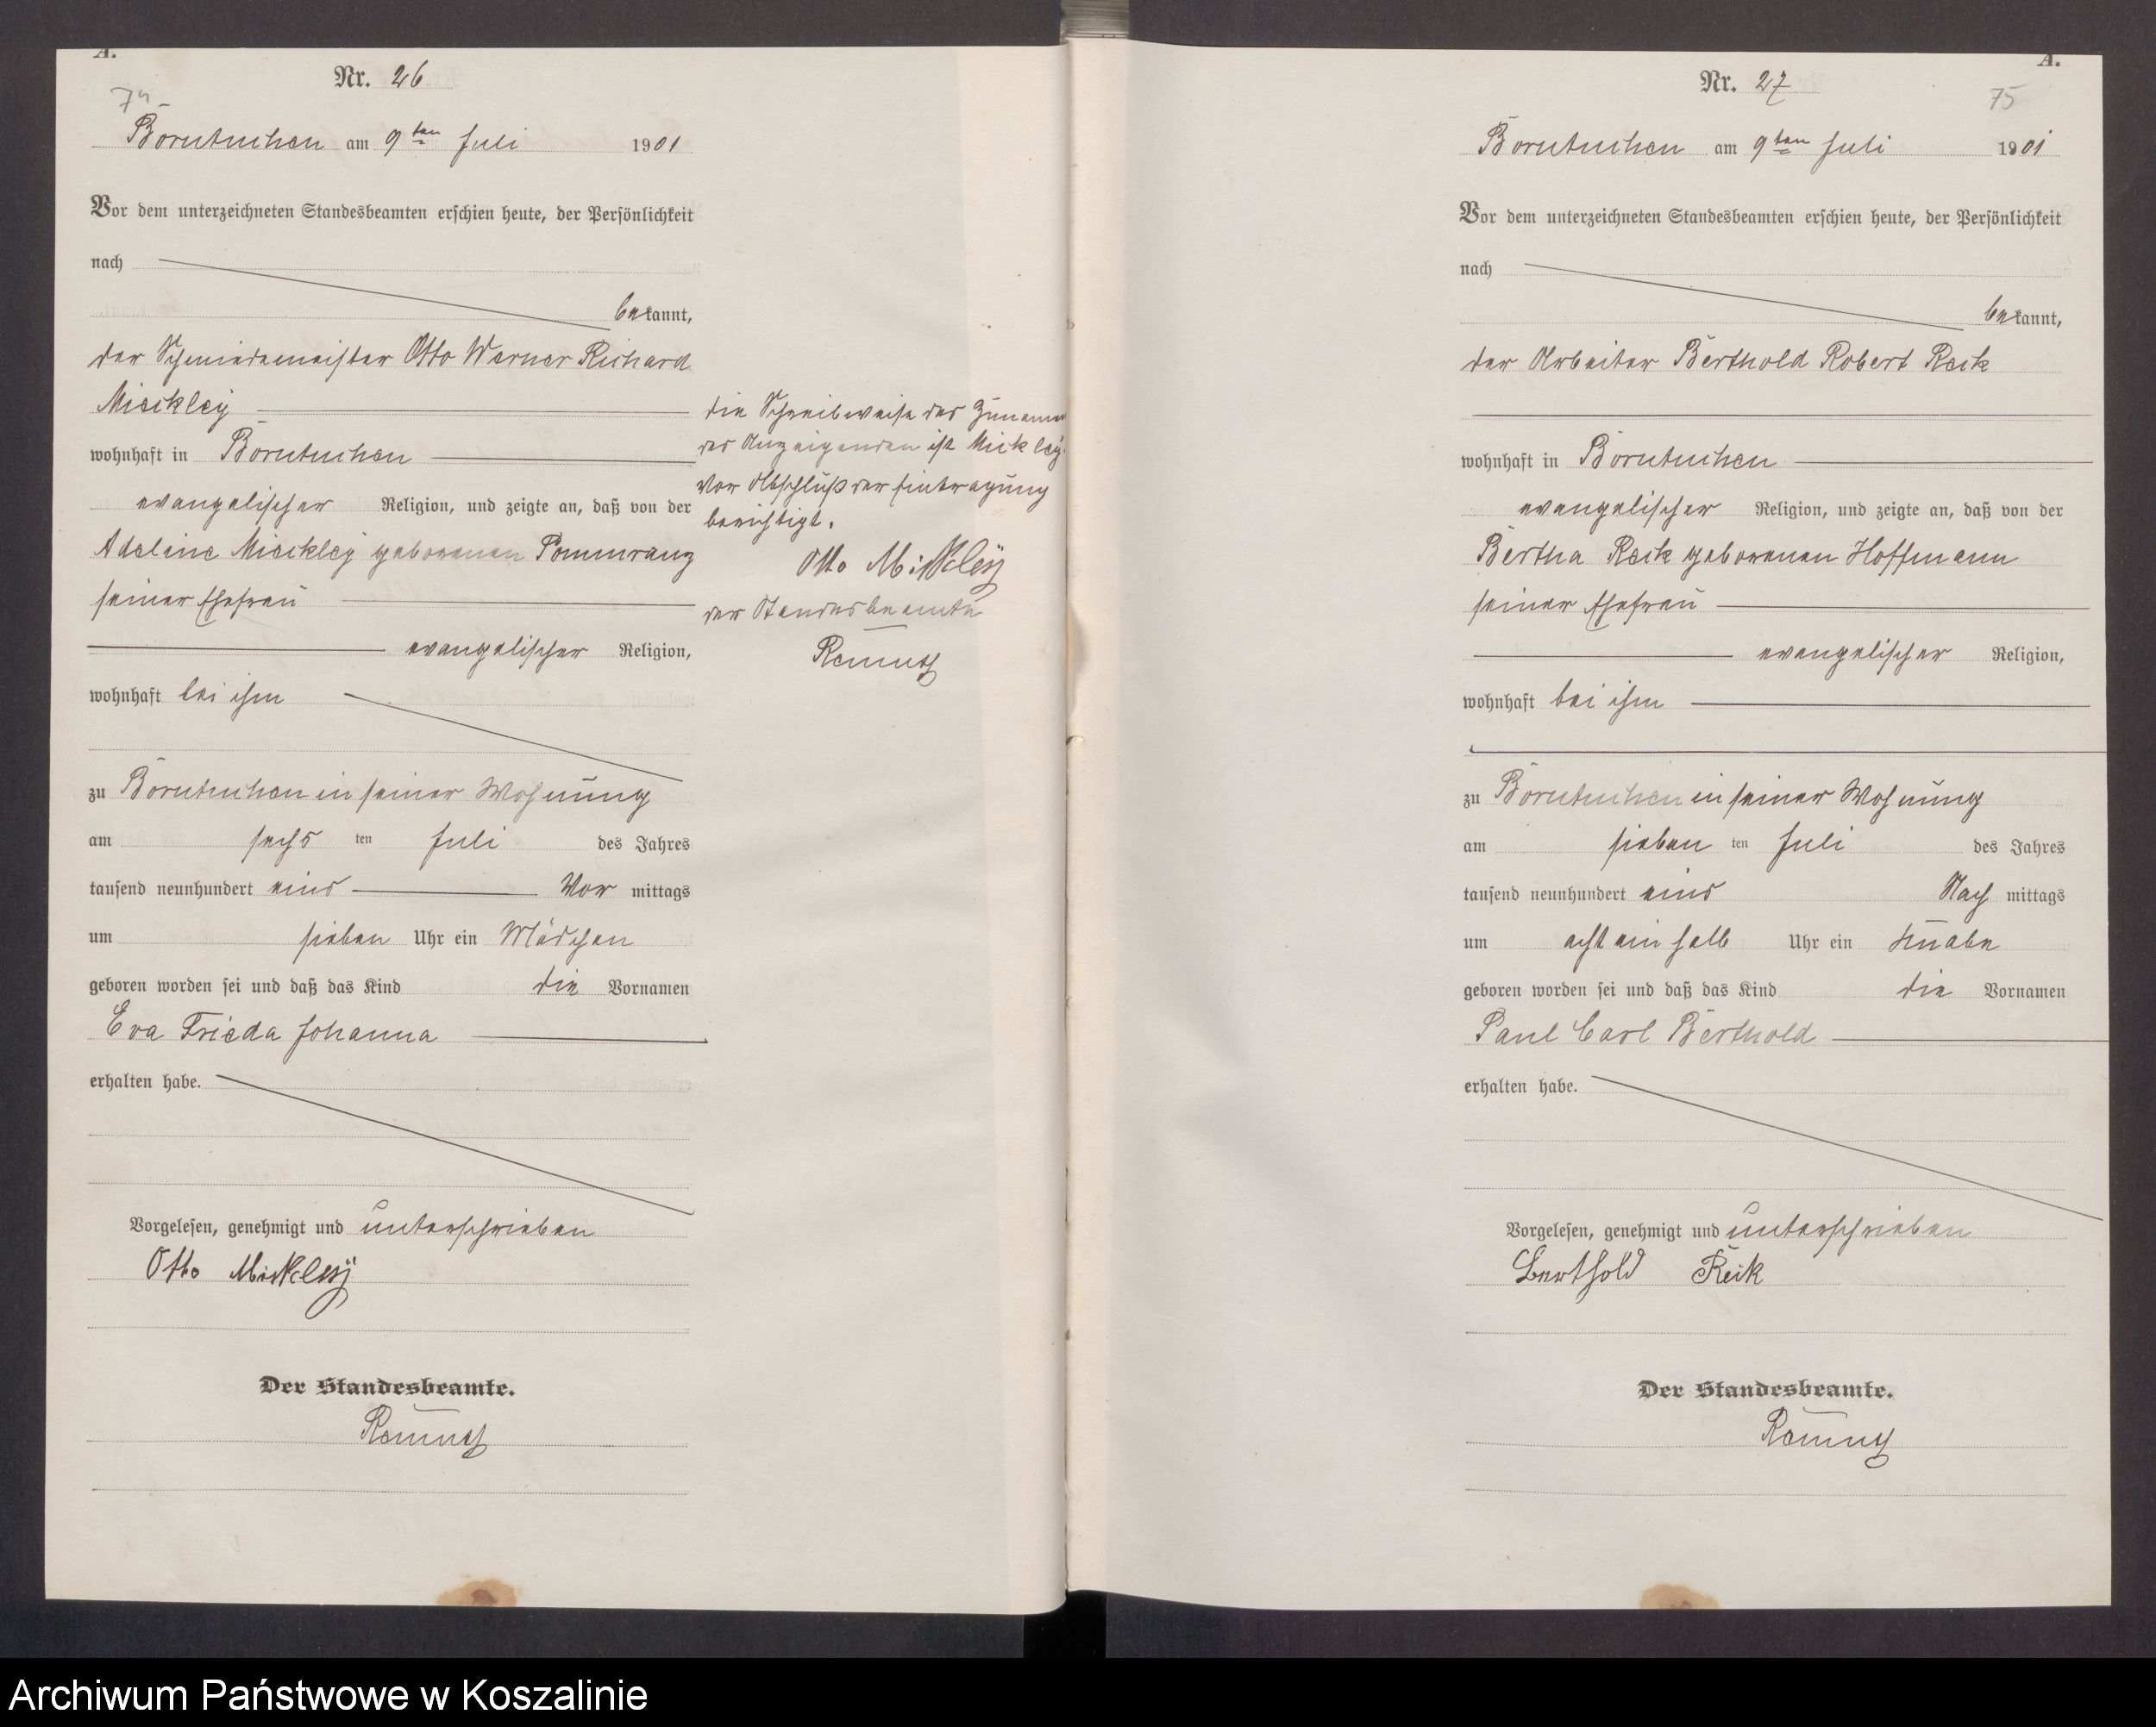 A.
Nr. 26
74
Borntuchen am 9ten Juli 1901
Vor dem unterzeichneten Standesbeamten erschien heute, der Persönlichkeit
nach
bekannt,
der Schmiedemeister Otto Werner Richard
Mieckley
wohnhaft in Borntuchen
evangelischer Religion, und zeigte an, daß von der
Adeline Mieckley geborenen Pommranz
seiner Ehefrau
evangelischer Religion,
wohnhaft bei ihm
zu Borntuchen in seiner Wohnung
am sechs ten Juli des Jahres
tausend neunhundert eins Vor mittags
um sieben Uhr ein Mädchen
geboren worden sei und daß das Kind die Vornamen
Eva Frieda Johanna
erhalten habe.
Vorgelesen, genehmigt und unterschrieben
Otto Mickley
Der Standesbeamte.
die Schreibweise des Zunamens
des Anzeigenden ist Mickley.
Vor Abschluß der Eintragung
berichtigt.
Otto Mickley
der Standesbeamte
A.
Nr. 27
75
Borntuchen am 9ten Juli 1901
Vor dem unterzeichneten Standesbeamten erschien heute, der Persönlichkeit
nach
bekannt,
der Arbeiter Berthold Robert Reik
wohnhaft in Borntuchen
evangelischer Religion, und zeigte an, daß von der
Bertha Reik geborenen Hoffmann
seiner Ehefrau
evangelischer Religion,
wohnhaft bei ihm
zu Borntuchen in seiner Wohnung
am sieben ten Juli des Jahres
tausend neunhundert eins Nach mittags
um acht ein halb Uhr ein Knabe
geboren worden sei und daß das Kind die Vornamen
Paul Carl Berthold
erhalten habe.
Vorgelesen, genehmigt und unterschrieben
Berthold Reik
Der Standesbeamte.
Archiwum Państwowe w Koszalinie